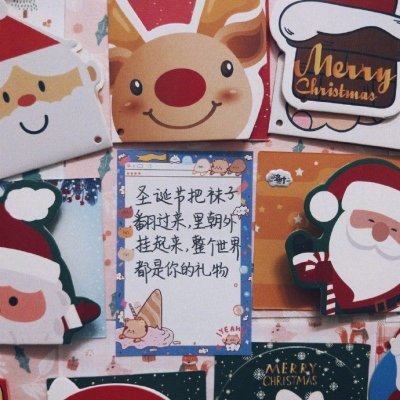 Merry
Christmas
圣诞节把袜子
翻过来,里朝外
挂起来,整个世界
都是你的礼物
YEAH
MERRY
CHRISTMAS
MERRY
CHRISTMAS